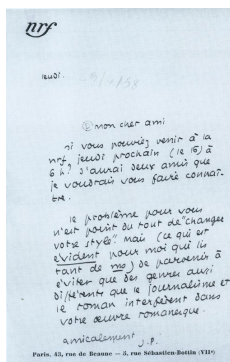 nrf
jeudi.
mon cher ami
si vous pouviez venir à la
nrf, jeudi prochain (le 16) à
6 h. J'aurai deux amis que
je voudrais vous faire connaî-
tre.
le problème pour vous
n'est point du tout de "changer
votre style" mais (ce qui est
évident pour moi qui lis
tant de ms) de parvenir à
éviter que des genres aussi
différents que le journalisme et
le roman interfèrent dans
votre œuvre romanesque.
amicalement, J.P.
Paris, 43, rue de Beaune — 5, rue Sébastien-Bottin (VIIe)